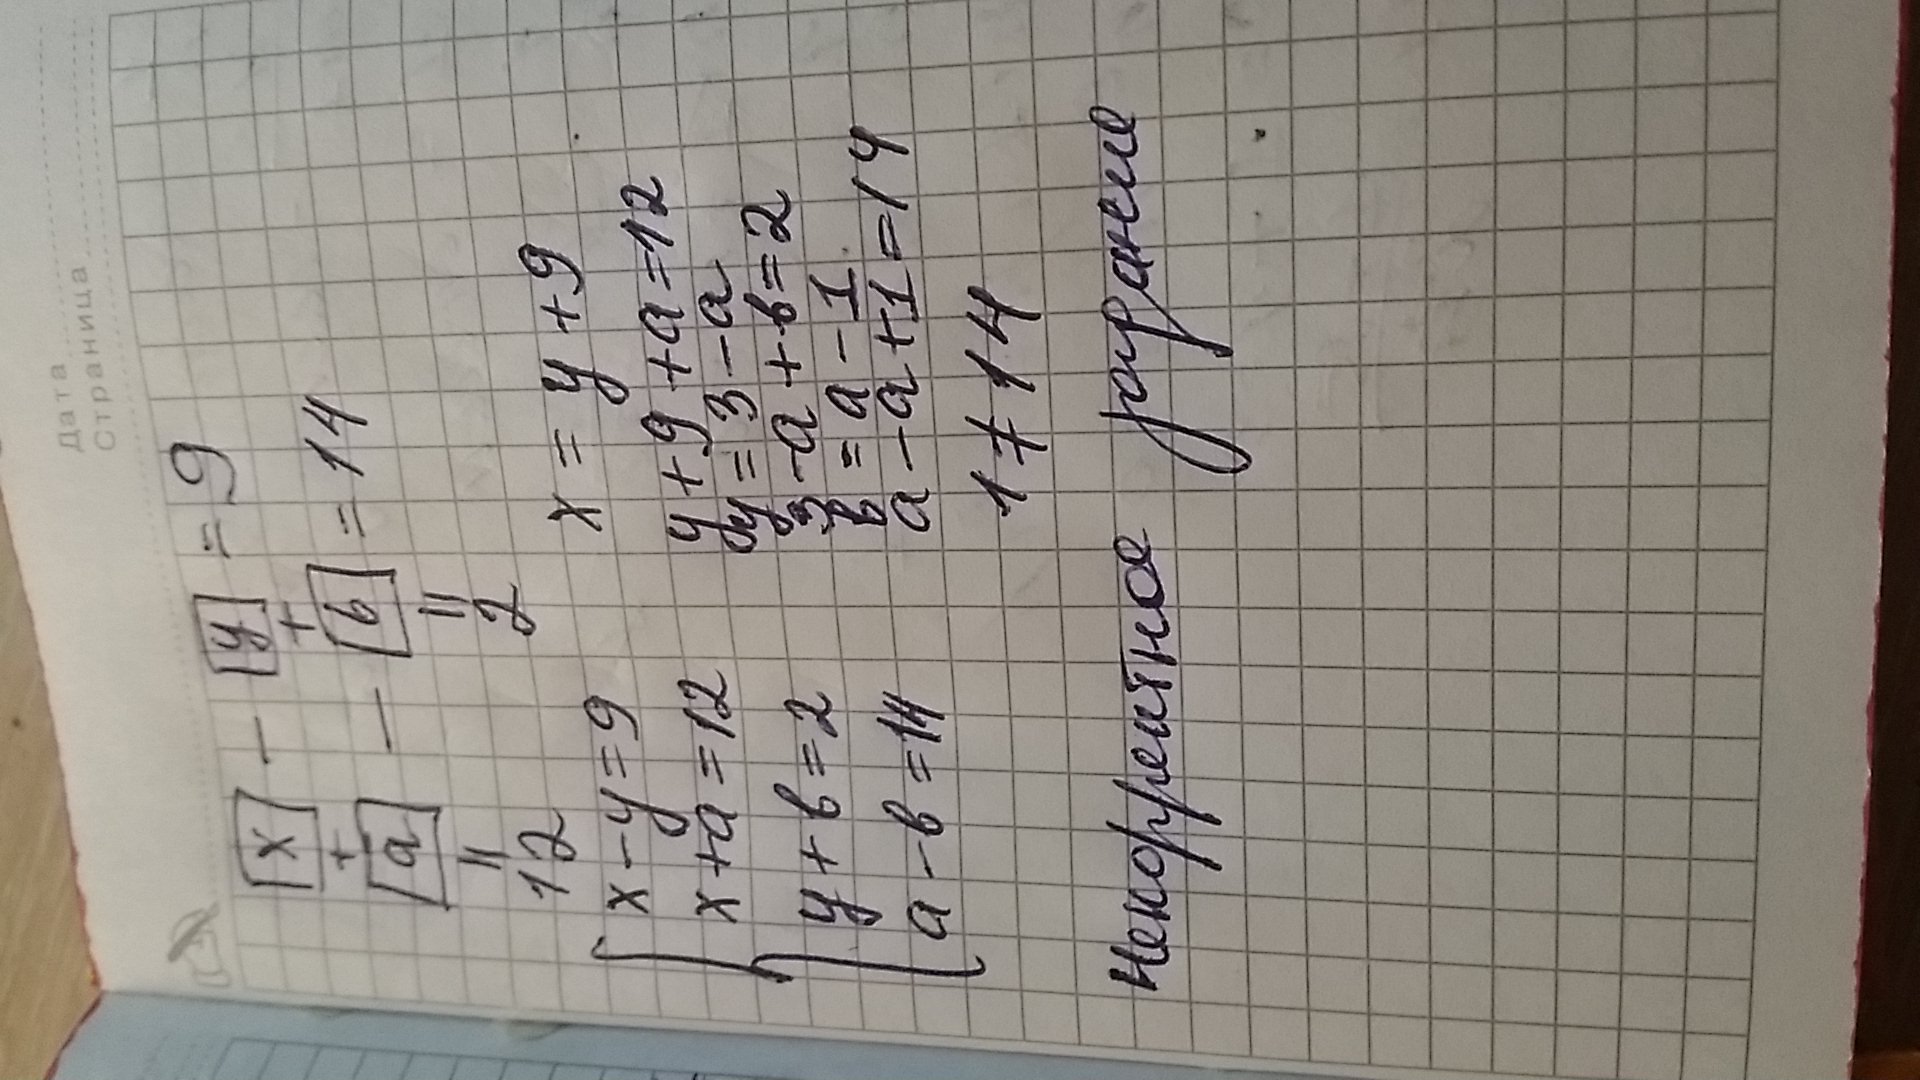 Дата
Страница
x - y = 9
+ +
a - b = 14
= =
12 2
x - y = 9
x + a = 12
y + b = 2
a - b = 14
x = y + 9
y + 9 + a = 12
y = 3 - a
3 - a + b = 2
b = a - 1
a - a + 1 = 14
1 ≠ 14
Некорректное задание